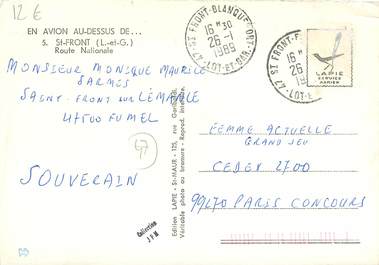 12 €
EN AVION AU-DESSUS DE...
5. St-FRONT (L.-et-G.)
Route Nationale
MONSIEUR MONIQUE MAURICE
SAINT-FRONT SUR LÉMANCE
47500 FUMEL
47
SOUVERAIN
Collection
JPM
Edition LAPIE - St-MAUR - 125, rue
Véritable photo au bromure - Reprod. interdite
47 ST FRONT-BLANQUEFORT
16 H 30
26 - 1
1989
LOT-ET-GAR.
47 ST FRONT
16 H
26
19
LOT-E
LAPIE
SERVICE
AERIEN
FEMME ACTUELLE
GRAND JEU
CEDEX 2700
99270 PARIS CONCOURS